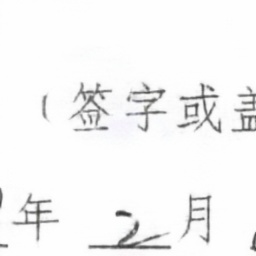 （签字或盖
年 2 月